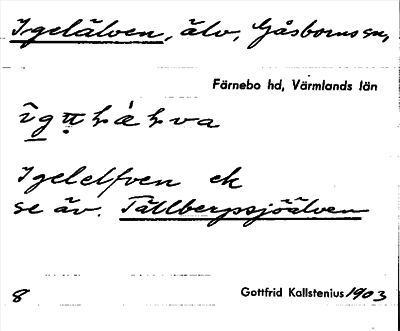 Igelälven, älv, Gåsborns sn,
Färnebo hd, Värmlands län
Igelelfven ek
se äv. Tällbergssjöälven
8
Gottfrid Kallstenius 1903